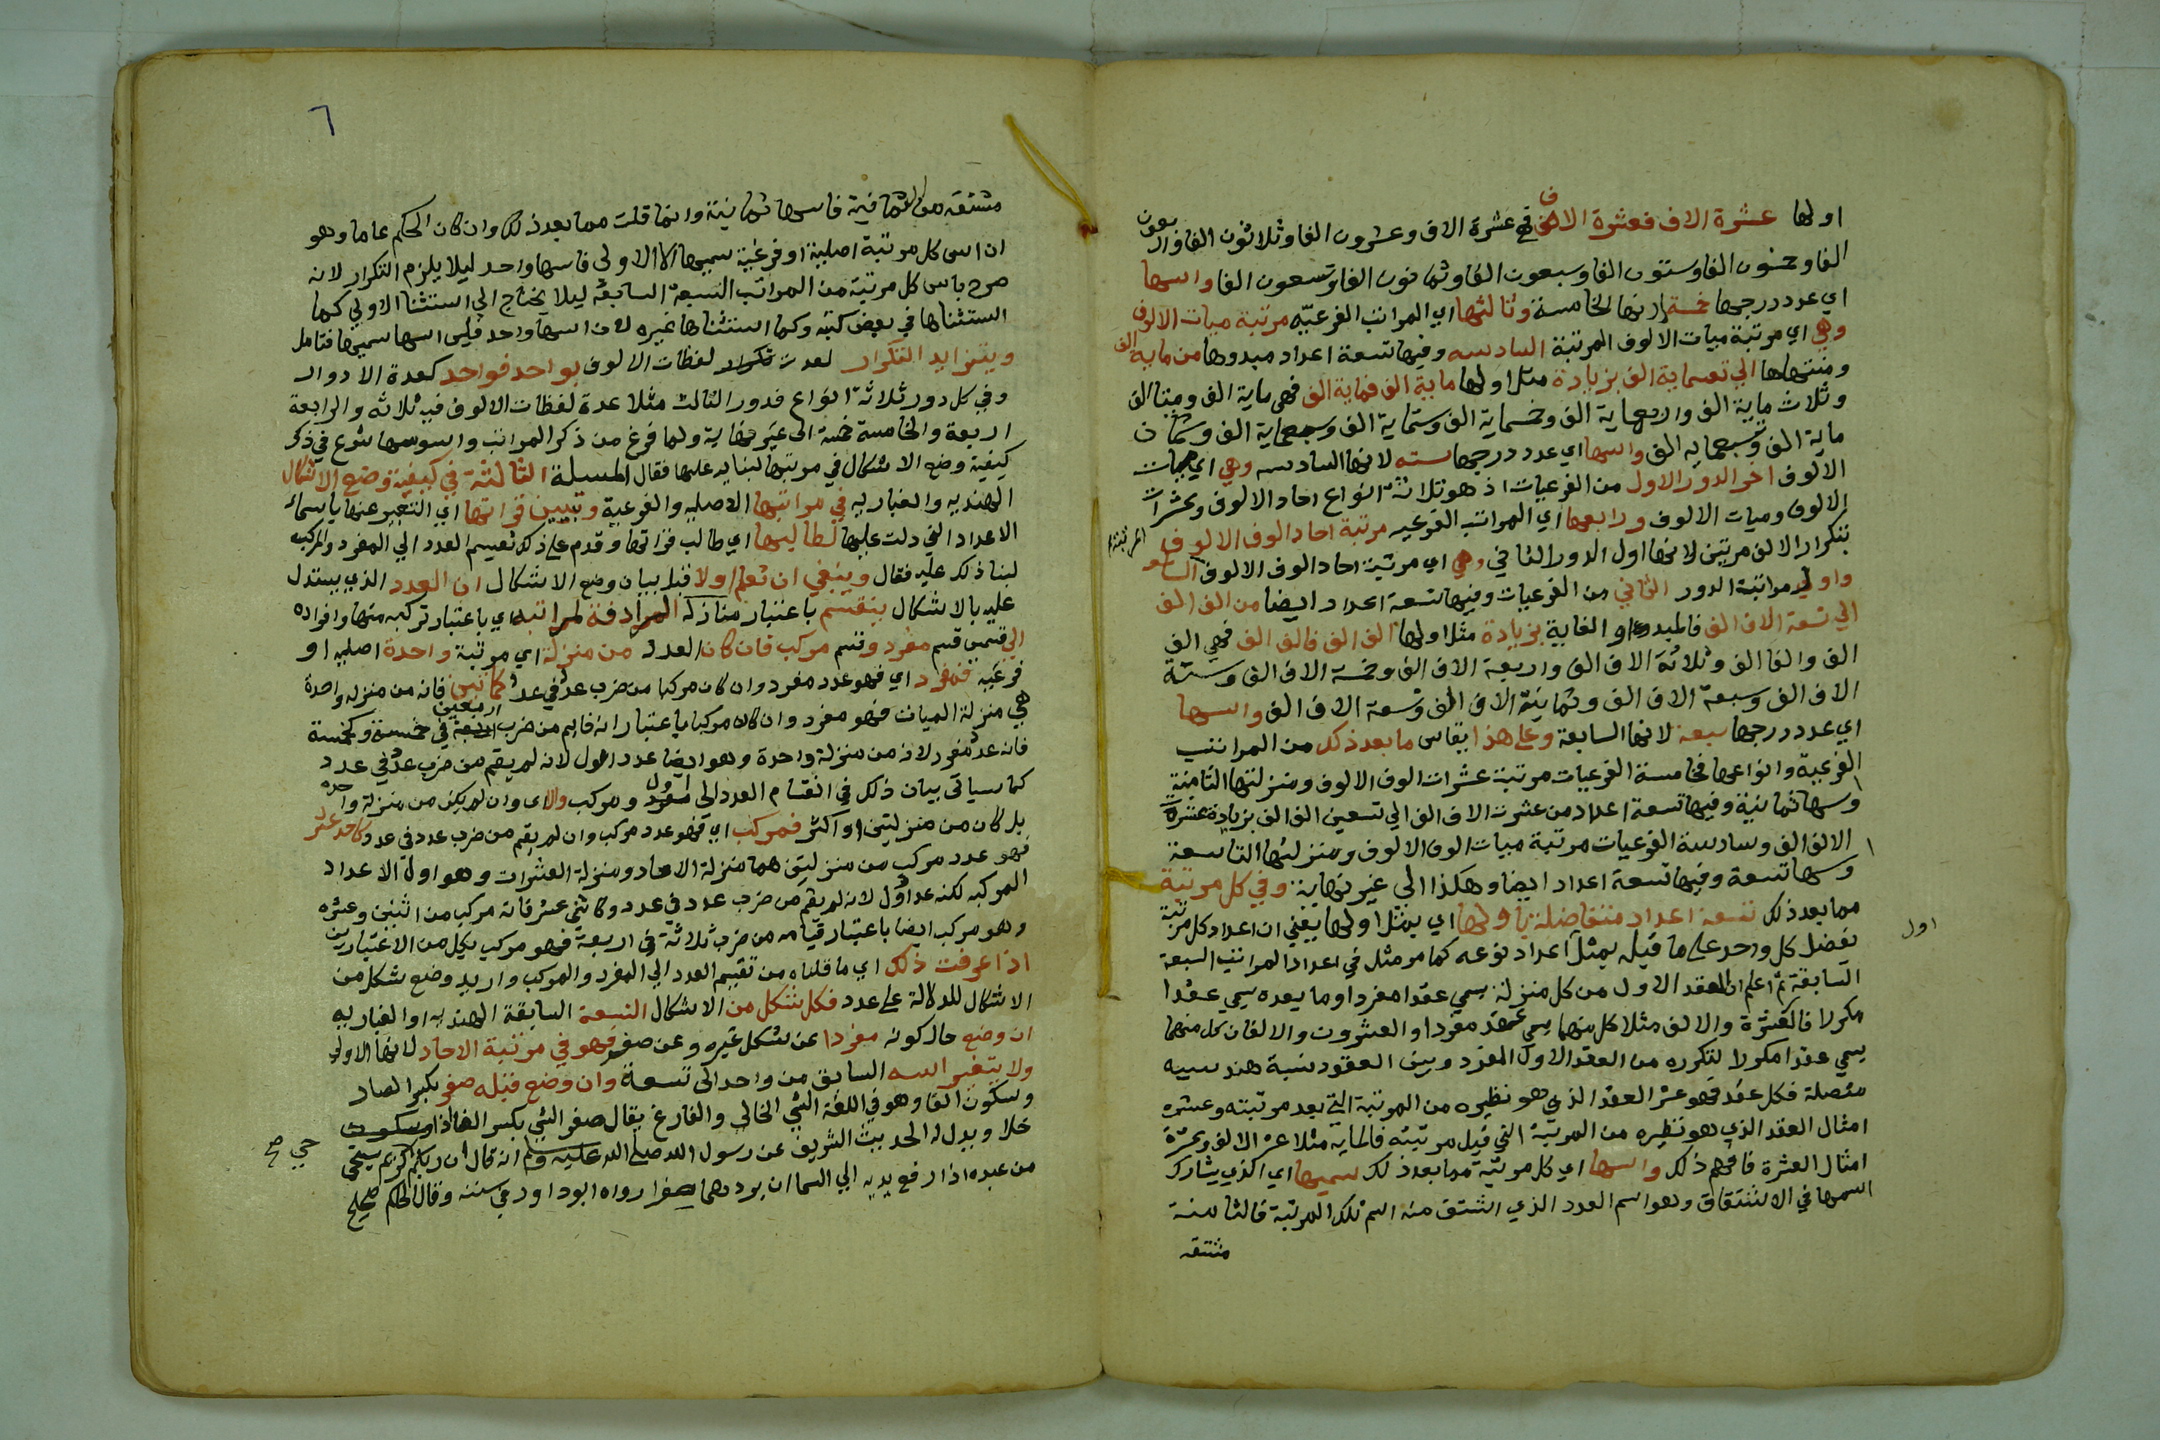 اولها عشرة الاف فعشرة الاف فهي عشرة الاف وعشرون الفا وثلاثون الفا واربعون
الفا وخمسون الفا وستون الفا وسبعون الفا وثمانون الفا وتسعون الفا واسها
اي عدد درجها خمسة لانها الخامسة وثالثها اي المراتب الفرعيه مرتبة ميات الالوف
وهي اي مرتبة ميات الالوف المرتبة السادسه وفيها تسعة اعداد مبدوها من ماية الف
ومنتهاها الي تسعماية الف بزيادة مثل اولها ماية الف فماية الف فهي ماية الف ومئتا الف
وثلاث ماية الف واربعماية الف وخمسماية الف وستماية الف وسبعماية الف وثمان
ماية الف وتسعماية الف واسها اي عدد درجها سته لانها السادسه وهي اي ميات
الالوف اخر الدور الاول من الفرعيات اذ هو ثلاثة انواع احاد الالوف وعشرات
الالوف وميات الالوف ورابعها اي المراتب الفرعيه مرتبة احاد الوف الالوف
بتكرار الالف مرتين لانها اول الدور الثاني وهي اي مرتبة احاد الوف الالوف السابعه
واول مراتبة الدور الثاني من الفرعيات وفيها تسعة اعداد ايضا من الف الف
الي تسعة الاف الف فالمبدو والغاية بزيادة مثل اولها الف الف فالف الف فهي الف
الف والفا الف وثلاثة الاف الف واربعة الاف الف وخمسة الاف الف وستة
الاف الف وسبعة الاف الف وثمانية الاف الف وتسعة الاف الف واسها
اي عدد درجها سبعة لانها السابعة وعلي هذا يقاس ما بعد ذلك من المراتب
الفرعية وانواعها فخامسة الفرعيات مرتبة عشرات الوف الالوف ومنزلتها الثامنة
واسها ثمانية وفيها تسعة اعداد من عشرت الاف الف الي تسعين الف الف بزيادة عشرة
الالف الف وسادسة الفرعيات مرتبة ميات الوف الالوف ومنزلتها التاسعة
وسها تسعة وفيها تسعة اعداد ايضا وهكذا الي غير نهاية وفي كل مرتبة
مما بعد ذلك تسعة اعداد متفاضلة باولها اي بمثل اولها يعني ان اعداد كل مرتبة
اول
يفضل كل واحد علي ما قبله بمثل اعداد نوعه كما مر مثله في اعداد المراتب السبعة
السابقة ثم اعلم ان العقد الاول من كل منزلة يسمي عقدا مفردا وما بعده يسمي عقدا
مكررا فالعشرة والالف مثلا كل منهما يسمي عقدا مفردا والعشرون والالفان كل منهما
يسمي عقدا مكررا لتكرره من العقد الاول المفرد وبين العقود نسبة هندسيه
متصلة فكل عقد فهو عشر العقد الذي هو نظيره من المرتبة التي بعد مرتبته وعشره
امثال العقد الذي هو نظيره من المرتبة التي قبل مرتبته فالماية مثلا عشر الالف وعشرة
امثال العشرة فافهم ذلك واسها اي كل مرتبة مما بعد ذلك سميها اي الذي يشارك
اسمها في الاشتقاق وهو اسم العدد الذي اشتق منه اسم تلك المرتبة فالثامنة
مشتقه
٦
مشتقه من الثمانية فاسها ثمانية وانما قلت مما بعد ذلك وان كان الحكم عاما وهو
ان اس كل مرتبة اصلية او فرعية سميها الا الاولي فاسها واحد ليلا يلزم التكرار لانه
صرح باس كل مرتبة من المراتب التسعة السابقة ليلا يحتاج الي استثنا الاولي كما
استثناها في بعض كتبه وكما استثناها غيره لان اسها واحد فليس اسها سميها فتامل
ويتزايد التكرار لعدت تكرار لفظات الالوف بواحد فواحد كعدة الادوار
وفي كل دور ثلاثة انواع فدور الثالث مثلا عدة لفظات الالوف فيه ثلاثه والرابعة
اربعة والخامسة خمسة الي غير نهاية ولما فرغ من ذكر المراتب واسوسها شرع في ذكر
كيفية وضع الاشكال في مرتبتها لبنايه عليها فقال المسلة الثالثة في كيفية وضع الاشكال
الهنديه والغباريه في مراتبها الاصليه والفرعية وتبيين قراتها اي التعبير عنها باسماء
الاعداد التي دلت عليها لطالبها اي طالب قراتها وقدم علي ذلك تقسيم العدد الي المفرد والمركب
لبنا ذلك عليه فقال وينبغي ان تعلم اولا قبل بيان وضع الاشكال ان العدد الذي يستدل
عليه بالاشكال ينقسم باعتبار منازله المرادفة لمراتبه اي باعتبار تركبه منها وافراده
الي قسمين قسم مفرد وقسم مركب فان كان العدد من منزلة اي مرتبة واحدة اصليه او
فرعيه فمفرد اي فهو عدد مفرد وان كان مركبا من ضرب عدد في عدد كمائتين فانه من منزله واحدة
هي منزلة الميات فهو مفرد وان كان مركبا باعتبار انه قايم من ضرب اربعين في خمسة وكخمسة
فانه عدد مفرد لانه من منزلة واحدة وهو ايضا عدد اول لانه لم يقم من ضرب عدد في عدد
كما سياتي بيان ذلك في انقسام العدد الي اول ومركب والا اي وان لم يكن من منزلة واحده
بل كان من منزلتين او اكثر فمركب اي فهو عدد مركب وان لم يقم من ضرب عدد في عدد كاحد عشر
فهو عدد مركب من منزلتين هما منزلة الاحاد ومنزلة العشرات وهو اول الاعداد
المركبه لكنه عدد اول لانه لم يقم من ضرب عدد في عدد وكاثني عشر فانه مركب من اثنين وعشره
وهو مركب ايضا باعتبار قيامه من ضرب ثلاثة في اربعة فهو مركب بكل من الاعتبارين
اذا عرفت ذلك اي ما قلناه من تقسيم العدد الي المفرد والمركب واريد وضع شكل من
الاشكال للدلالة علي عدد فكل شكل من الاشكال التسعة السابقة الهنديه او الغباريه
ان وضع حال كونه مفردا عن شكل غيره وعن صفر فهو في مرتبة الاحاد لانها الاولي
ولا يتغير اسه السابق من واحد الي تسعة وان وضع قبله صفر بكسر الصاد
وسكون الفا وهو في اللغة الشي الخالي والفارغ يقال صفر الشي بكسر الفا اذا
خلا ويدل له الحديث الشريف عن رسول الله صلي الله عليه وسلم انه قال ان ربكم كريم يستحي
من عبده اذا رفع يديه الي السما ان يردهما صفرا رواه ابو داود في سننه وقال الحاكم صحيح